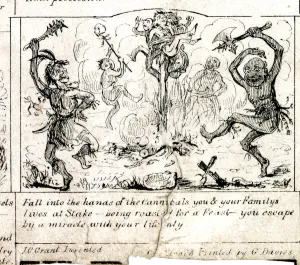 Fall into the hands of the Cannibals you & your Familys
lives at Stake - being roasted for a Feast you escape
by a miracle with your life only
J.C Grant Invented
Printed by G Davies